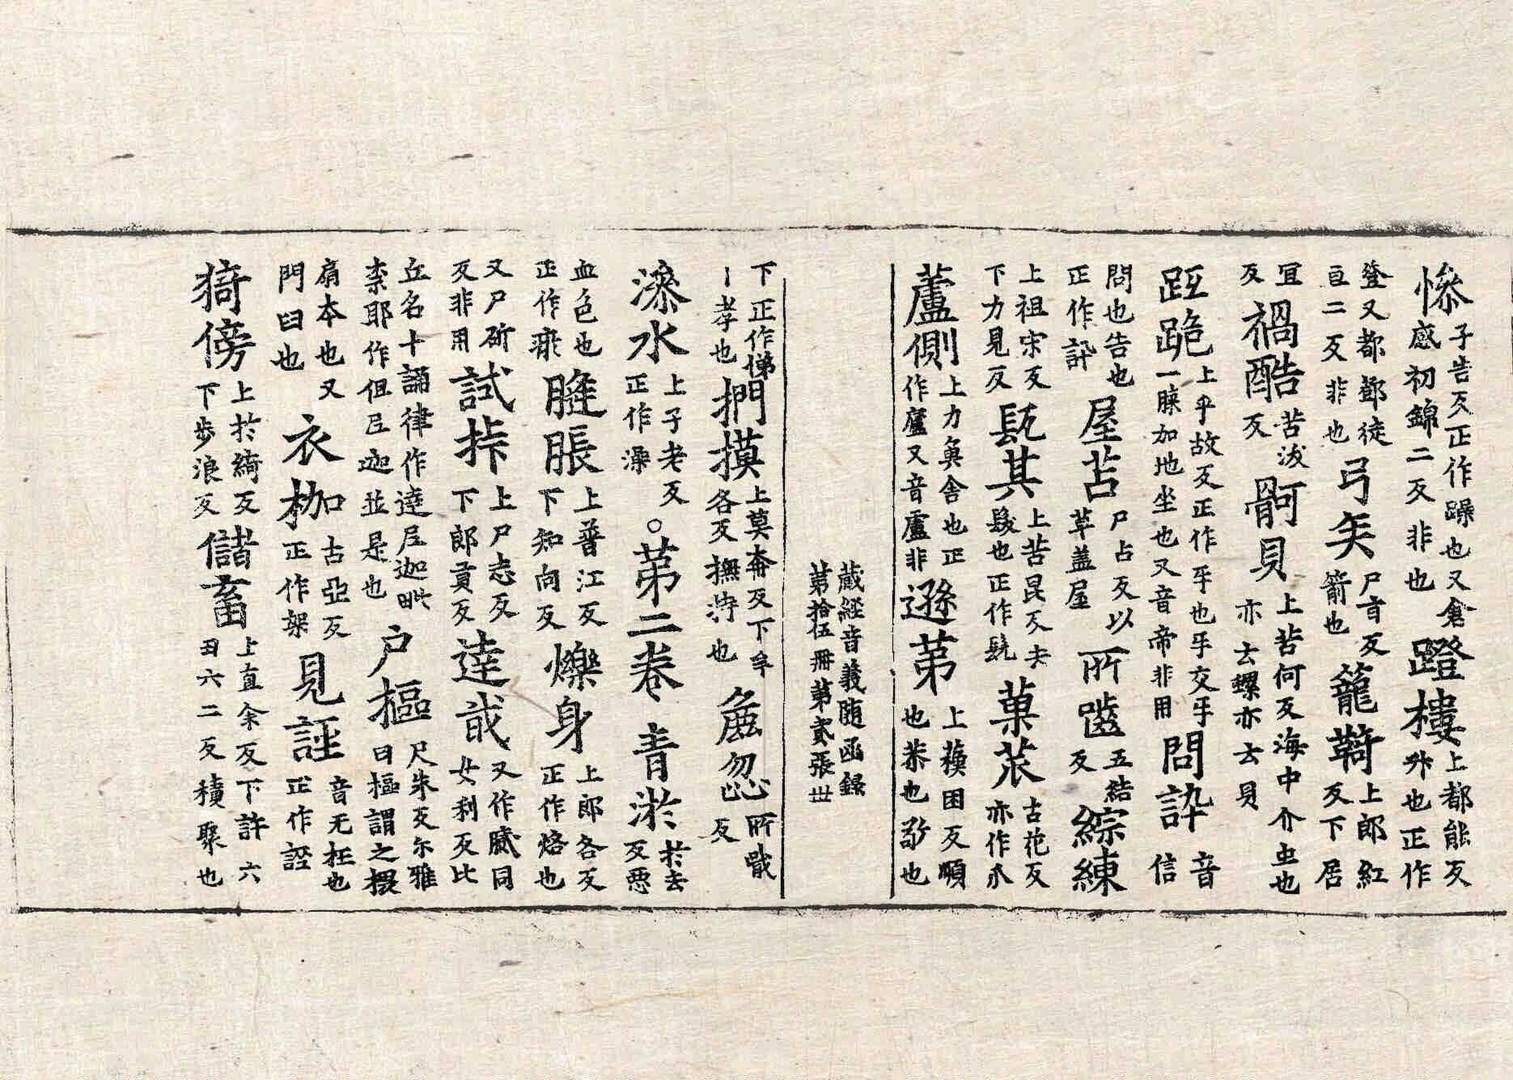 惨子告反正作躁也又倉感初錦二反非也蹬樓上都能反外也正作
登又都鄧徒亘二反非也弓矢尸盲反箭也籠䩭上郎紅反下居
宜反禍酷苦沃反䯊貝上苦何反海中介虫也亦云螺亦云貝
跓跪上乎故反正作㸦也㸦交㸦一䐑加地坐也又音帝非用問訡音信
問也告也正作訊屋苫尸占反以草盖屋所齧五結反綜練
上祖宋反下力見反髡其上苦昆反去髮也正作髡菓苽古花反亦作𠂢
蘆側上力奠舍也正作廬又音盧非遜苐上蘓困反順也恭也敬也
藏經音義随函録
苐拾伍冊苐貳張丗
下正作悌丨孝也捫摸上莫奔反下牟各反撫持也麁忽所戢反
澡水上子老反正作澡○苐二卷青淤於去反惡
血色也正作瘀䐺脹上普江反下知向反爍身上郎各反正作烙也
又尸斫反非用試拤上尸志反下郎貢反達戝又作膩同女利反比
丘名十誦律作達尼迦毗柰耶作但𡰱迦並是也户樞尺朱反尔雅曰樞謂之椳
扇本也又門臼也衣枷古亞反正作架見誣音无枉也正作誣
猗傍上於綺反下步浪反儲畜上直余反下許六丑六二反積聚也